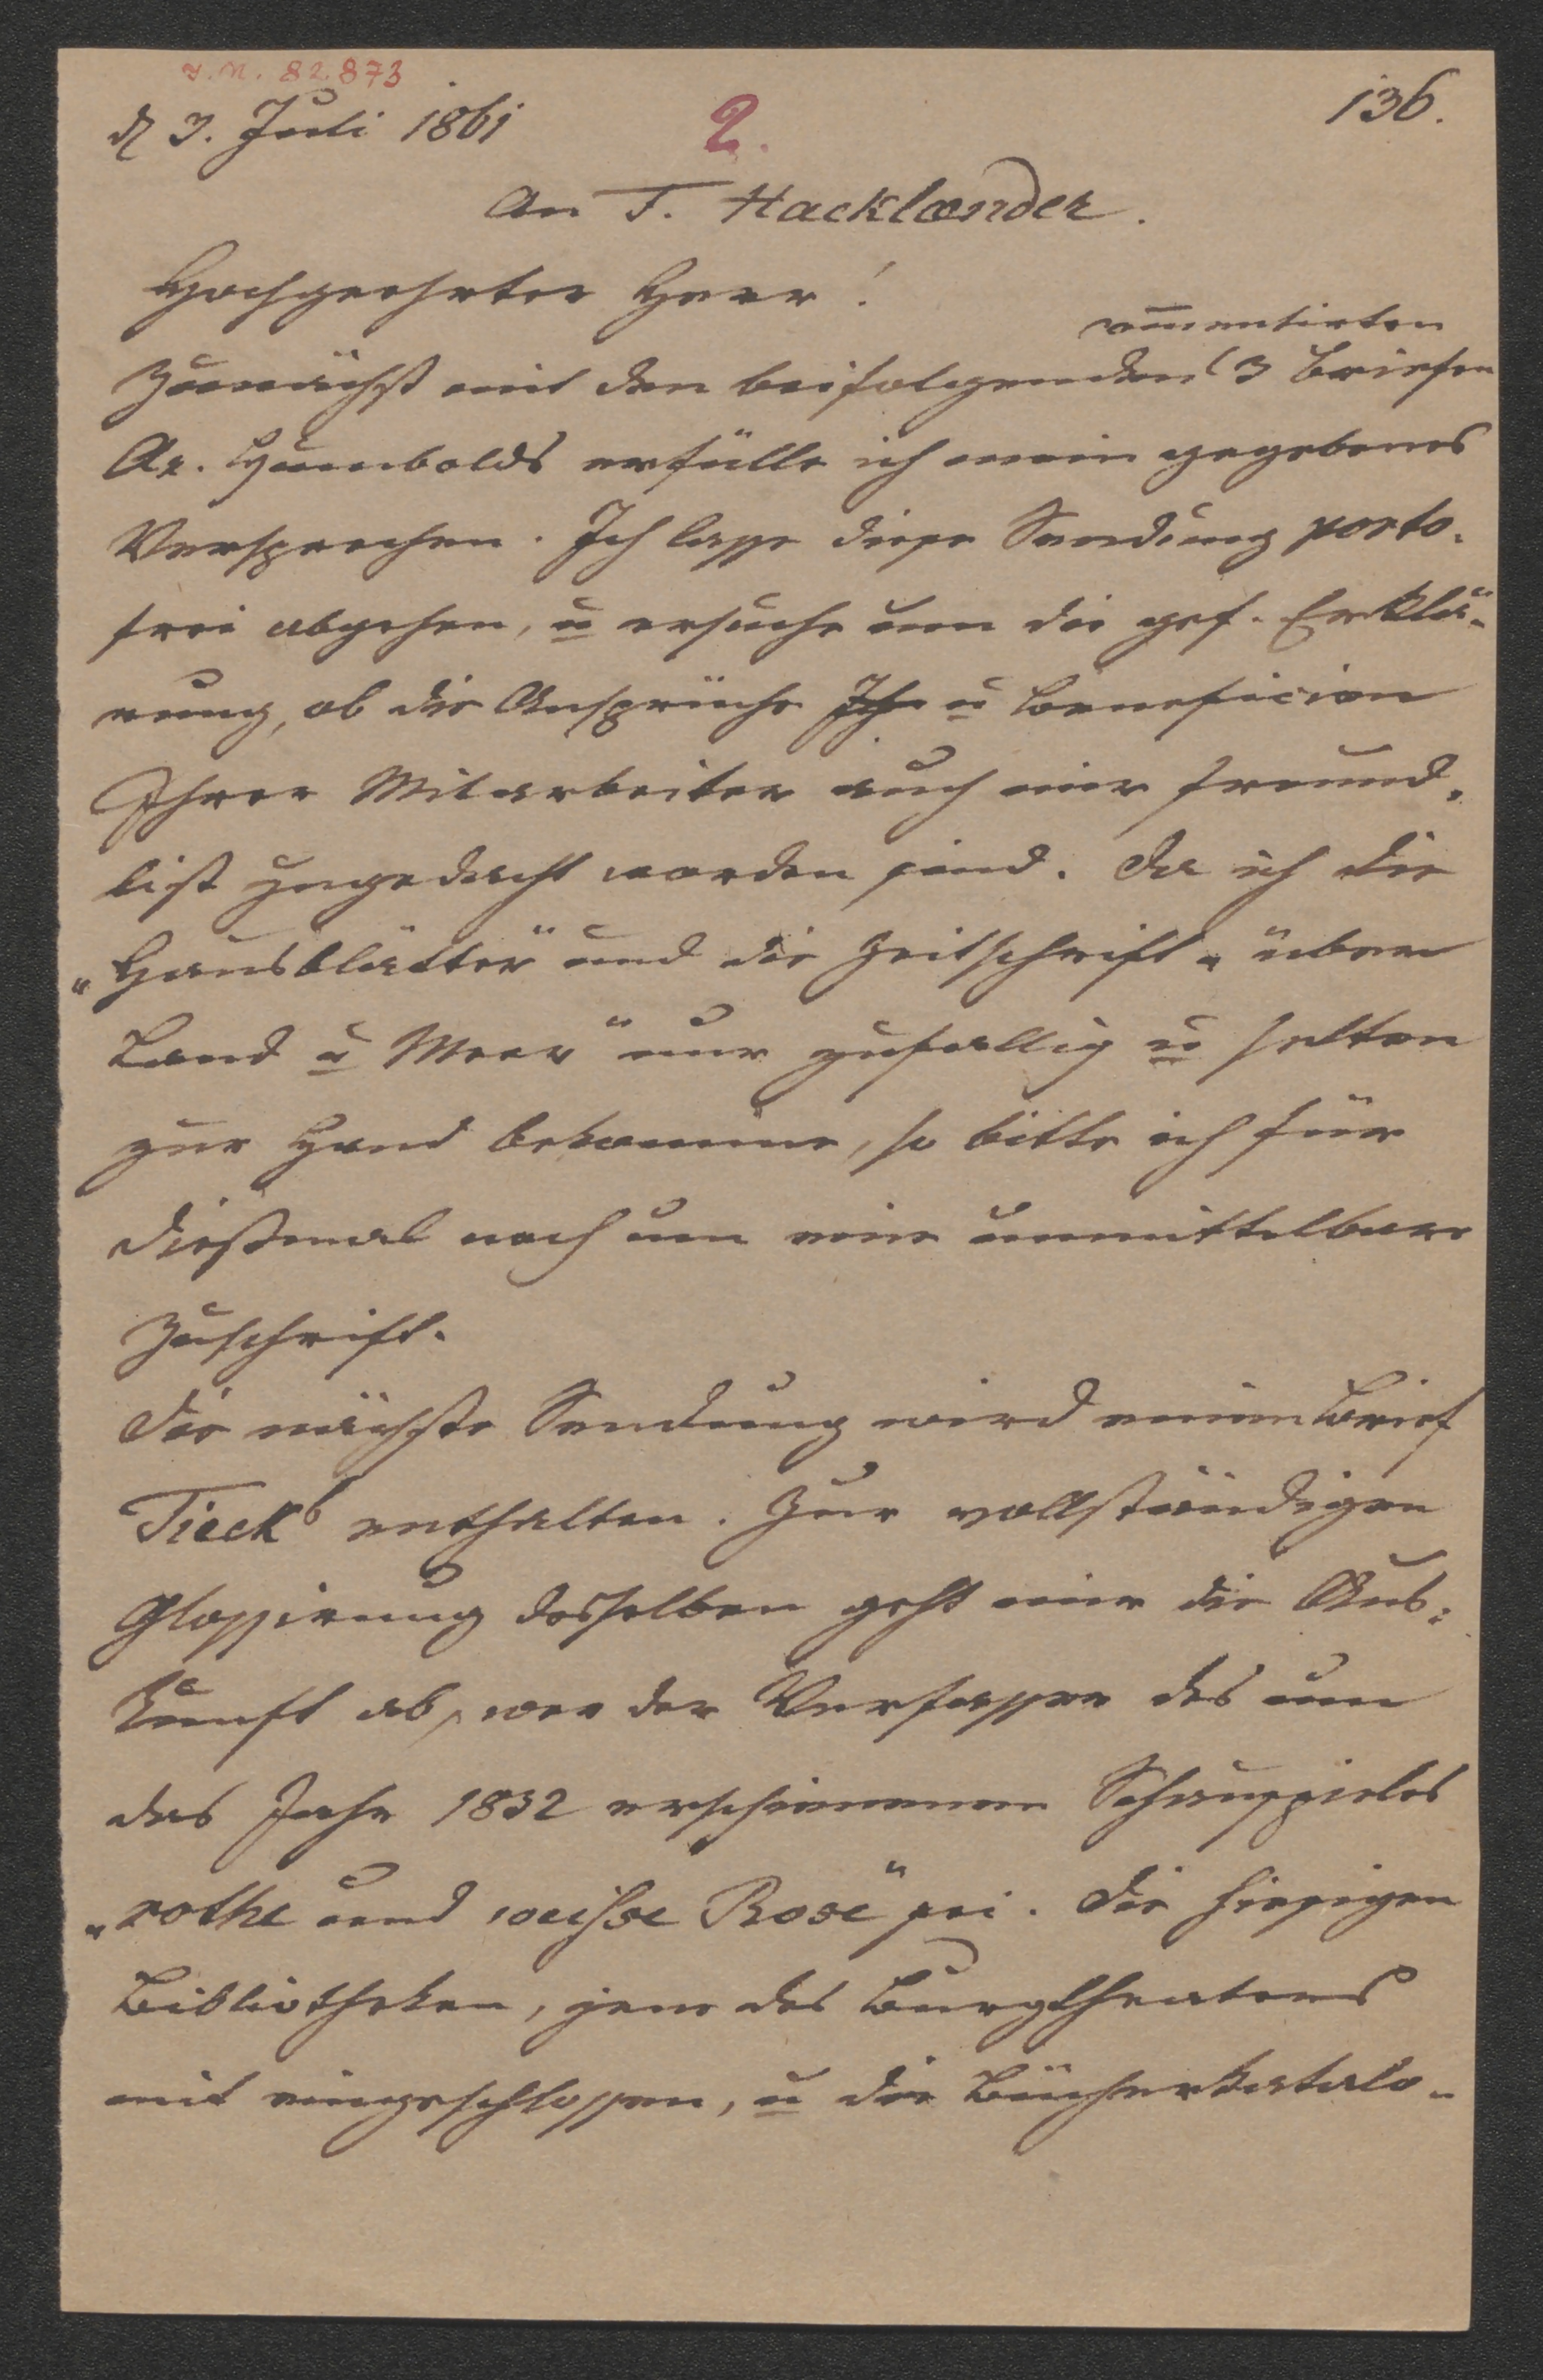 I.N. 82.873
d 3. Juli 1861
2.
136.
An F. Hacklænder.
Hochgeehrter Herr!
commentirten
Zunächst mit den beifolgenden 3 Briefen
Ax. Humbolds erfülle ich mein gegebenes
Versprechen. Ich lasse diese Sendung porto-
frei abgehen, u ersuche um die gef. Erklä-
rung, ob die Ansprüche Ihr u Beneficien
Ihrer Mitarbeiter auch mir freund-
lichst zugedacht worden sind. Da ich die
„Hausblätter" und die Zeitschrift „über
Land u Meer" nur zufallig u selten
zur Hand bekomme, so bitte ich für
dießmal noch um eine unmittelbare
Zuschrift.
Die nächste Sendung wird einen Brief
Tiecks enthalten. Zur vollständigen
Glossirung desselben geht mir die Aus-
kunft ab, wer der Verfasser des um
das Jahr 1832 erschienenen Schauspieles
„rothe und weisse Rose" sei. Die hiesigen
Bibliotheken, jene des Burgtheaters
mit eingeschlossen, u die Bücherkatalo-